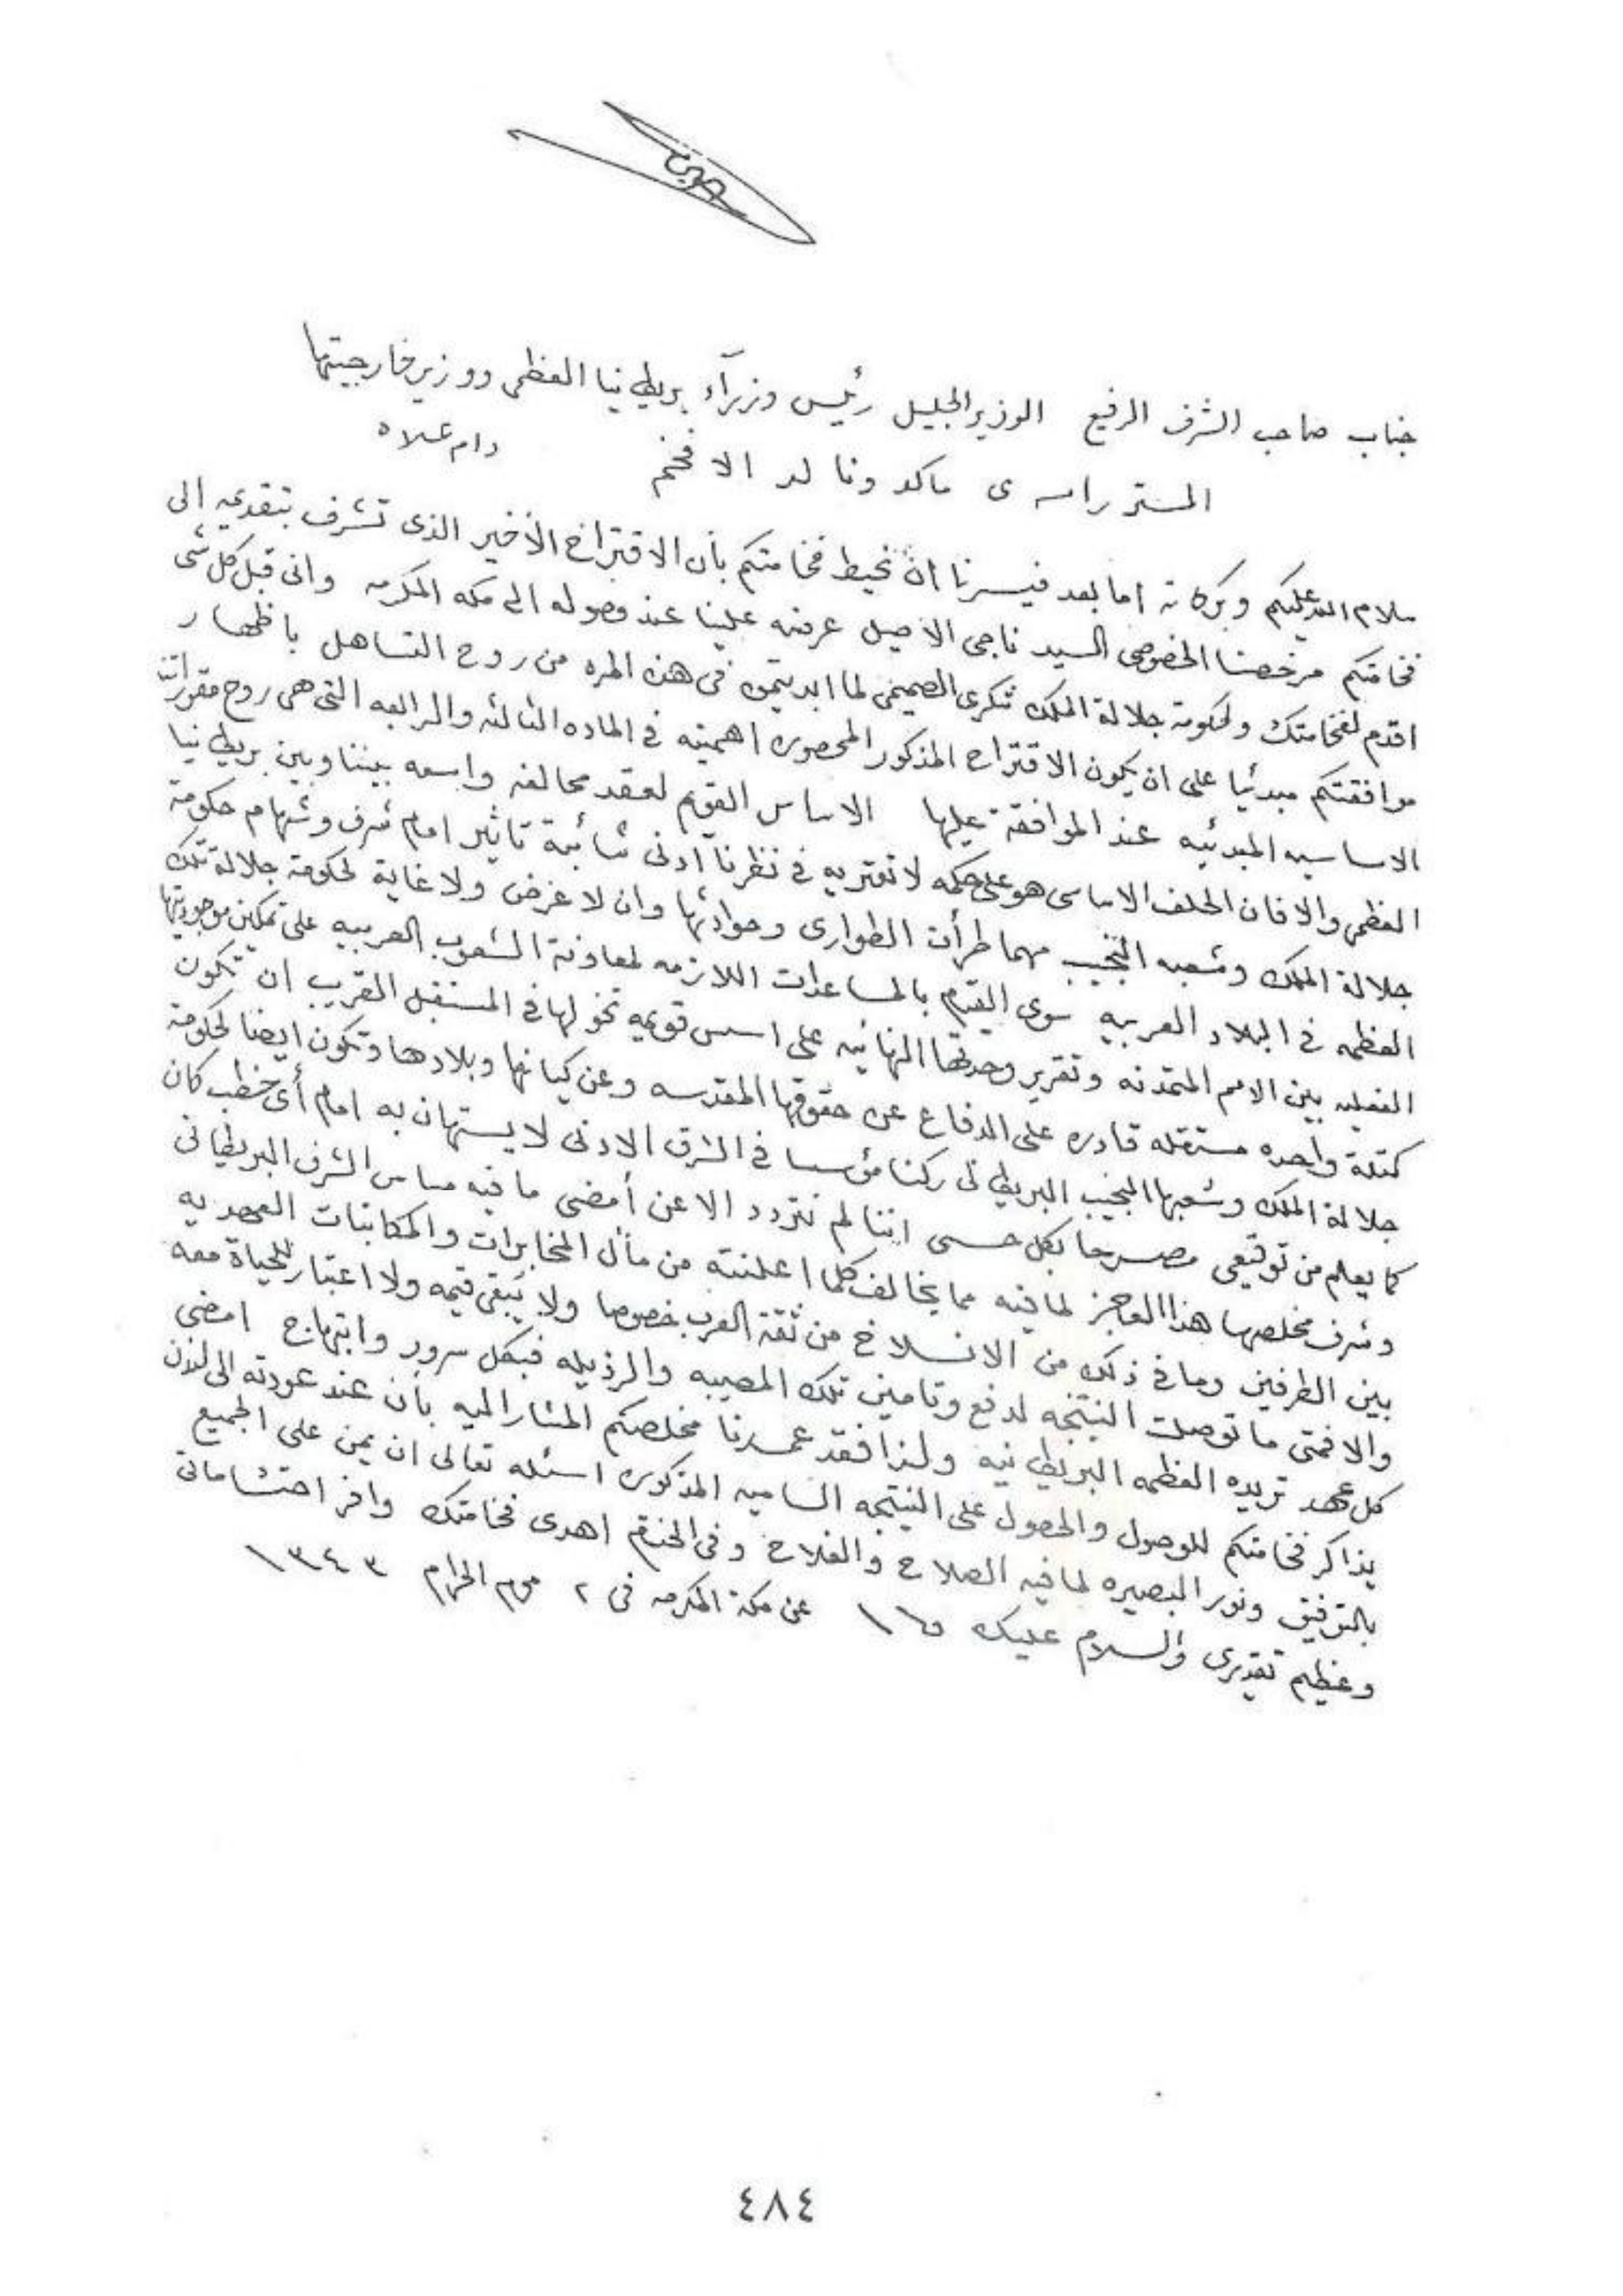 حسين
جناب صاحب الشرف الرفيع الوزير الجليل رئيس وزرآء بريطانيا العظمى ووزير خارجيتها
المستر رامسه ى ماكدونالد الافخم دام علاه
سلام الله عليكم وبركاته اما بعد فيسرنا ان نحيط فخامتكم بأن الاقتراح الأخير الذى تشرف بتقديمه الى
فخامتكم مرخصنا الخصوصى السيد ناجى الاصيل عرضه علينا عند وصوله الى مكه المكرمه وانى قبل كل شى
اقدم لفخامتك ولحكومة جلالة الملك شكرى الصميمى لما ابديتموه فى هذه المره من روح التساهل باظهار
موافقتكم مبدئيا على ان يكون الاقتراح المذكور المحصوره اهميته فى الماده الثالثه والرابعه التى هى روح مقررات
الاساسيه المبدئيه عند الموافقة عليها الاساس القويم لعقد محالفه واسعه بيننا وبين بريطانيا
العظمى والا فان الحلف الاساسى هو على حكمه لا تعتريه فى نظرنا أدنى شائبة تاثير امام شرف وشهام حكومة
جلالة الملك وشعبه النجيب مهما طرأت الطوارى وحوادثها وان لا غرض ولا غاية لحكومة جلالة تلك
العظمه فى البلاد العربيه سوى القيام بالمساعدات اللازمه لمعاونة الشعوب العربيه على تمكين موجوديتها
الفعليه بين الامم المتمدنه وتقرير وحدتها النهائيه على اسس قويمه تخولها فى المستقبل القريب ان تكون
كتلة واحده مستقله قادره على الدفاع عن حقوقها المقدسه وعن كيانها وبلادها وتكون ايضا لحكومة
جلالة الملك وشعبها النجيب البريطانى ركنا مؤسسا فى الشرق الادنى لا يستهان به امام أى خطب كان
كما يعلم من توقيعى مصرحا بكل حسى اننا لم نتردد الا عن أمضى ما فيه مساس الشرف البريطانى
وشرف مخلصها هذا العاجز لما فيه مما يخالف كلما اعلنته من مأل المخابرات والمكاتبات العهديه
بين الطرفين وما فى ذلك من الانسلاخ من ثقة العرب خصوصا ولا يبقى قيمه ولا اعتبار للحياة معه
والا فمتى ما توصلت النتيجه لدفع وتامين تلك المصيبه والرذيله فبكل سرور وابتهاج امضى
كل عهد تريده العظمه البريطانيه ولذا فقد عمدنا مخلصكم المشار اليه بأن عند عودته الى لندن
يذاكر فخامتكم للوصول والحصول على النتيجه الساميه المذكوره اسئله تعالى ان يمن على الجميع
بالتوفيق ونور البصيره لما فيه الصلاح والفلاح وفى الختام اهدى فخامتك وافر احتشاماتى
وعظيم تقديرى والسلام عليك عن مكة المكرمه فى ٢ محرم الحرام ١٣٤٣
٤٨٤